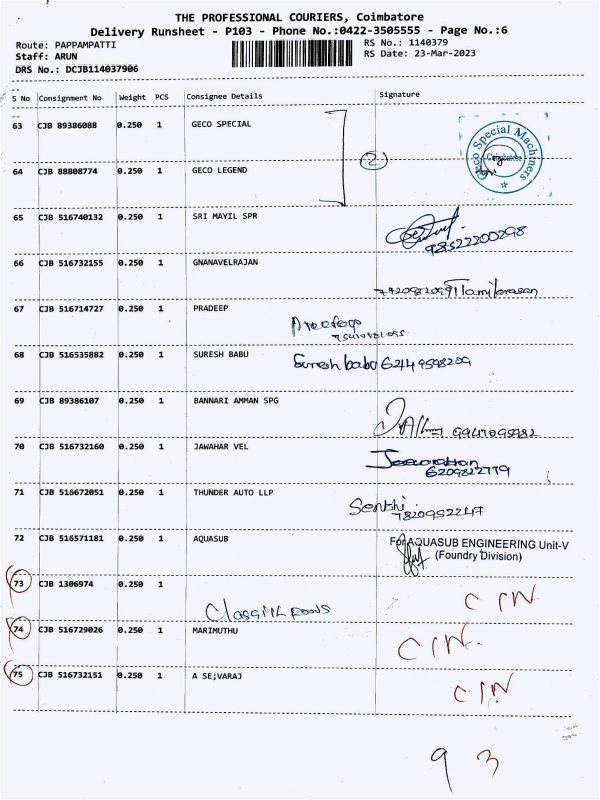 THE PROFESSIONAL COURIERS, Coimbatore
Delivery Runsheet - P103 - Phone No.:0422-3505555 - Page No.:6
Route: PAPPAMPATTI RS No.: 1140379
Staff: ARUN RS Date: 23-Mar-2023
DRS No.: DCJB114037906
S No Consignment No Weight PCS Consignee Details Signature
63 CJB 89386088 0.250 1 GECO SPECIAL
Geco Special Machiners
Coimbatore
2
64 CJB 88808774 0.250 1 GECO LEGEND
65 CJB 516740132 0.250 1 SRI MAYIL SPR
98522200298
66 CJB 516732155 0.250 1 GNANAVELRAJAN
Tamilarasan
67 CJB 516714727 0.250 1 PRADEEP
68 CJB 516535882 0.250 1 SURESH BABU
Suresh babu 62449598209
69 CJB 89386107 0.250 1 BANNARI AMMAN SPG
70 CJB 516732160 0.250 1 JAWAHAR VEL
6209822779
71 CJB 516672051 0.250 1 THUNDER AUTO LLP
Senthi
78209522147
72 CJB 516571181 0.250 1 AQUASUB
For AQUASUB ENGINEERING Unit-V
(Foundry Division)
73 CJB 1306974 0.250 1
CIN
74 CJB 516729026 0.250 1 MARIMUTHU
CIN
75 CJB 516732151 0.250 1 A SE;VARAJ
CIN
9 3